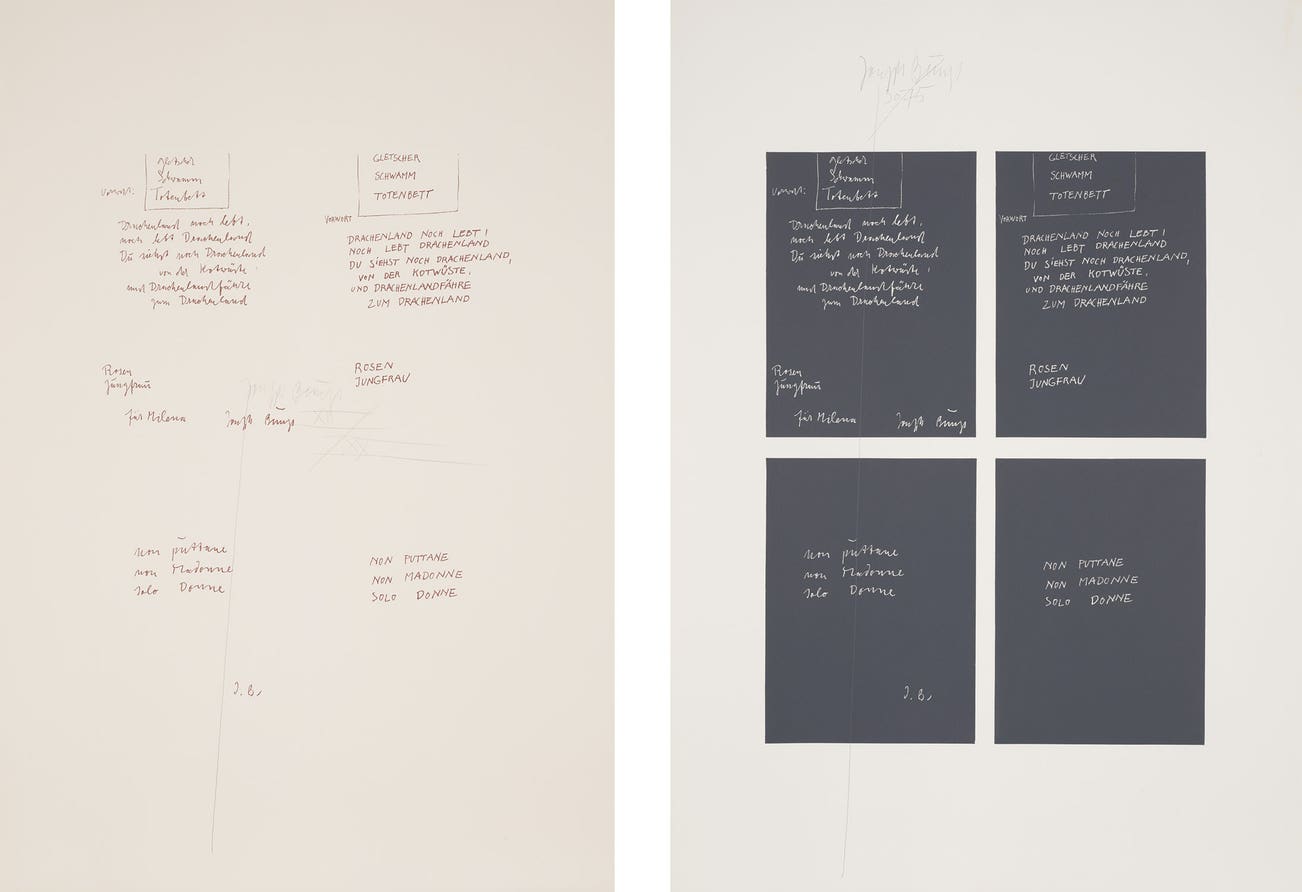 Gletscher
Schwamm
Vorwort: Totenbett
Drachenland noch lebt,
noch lebt Drachenland
Du siehst noch Drachenland
von der Kotwüste,
und Drachenlandfähre
zum Drachenland
Rosen
Jungfrau
für Milena Joseph Beuys
GLETSCHER
SCHWAMM
TOTENBETT
VORWORT
DRACHENLAND NOCH LEBT!
NOCH LEBT DRACHENLAND
DU SIEHST NOCH DRACHENLAND,
VON DER KOTWÜSTE,
UND DRACHENLANDFÄHRE
ZUM DRACHENLAND
ROSEN
JUNGFRAU
Joseph Beuys
non puttane
non Madonne
solo Donne
J. B.
NON PUTTANE
NON MADONNE
SOLO DONNE
Joseph Beuys
1975
Gletscher
Schwamm
Vorwort: Totenbett
Drachenland noch lebt,
noch lebt Drachenland
Du siehst noch Drachenland
von der Kotwüste,
und Drachenlandfähre
zum Drachenland
Rosen
Jungfrau
für Milena Joseph Beuys
GLETSCHER
SCHWAMM
TOTENBETT
VORWORT
DRACHENLAND NOCH LEBT!
NOCH LEBT DRACHENLAND
DU SIEHST NOCH DRACHENLAND,
VON DER KOTWÜSTE,
UND DRACHENLANDFÄHRE
ZUM DRACHENLAND
ROSEN
JUNGFRAU
non puttane
non Madonne
solo Donne
J. B.
NON PUTTANE
NON MADONNE
SOLO DONNE